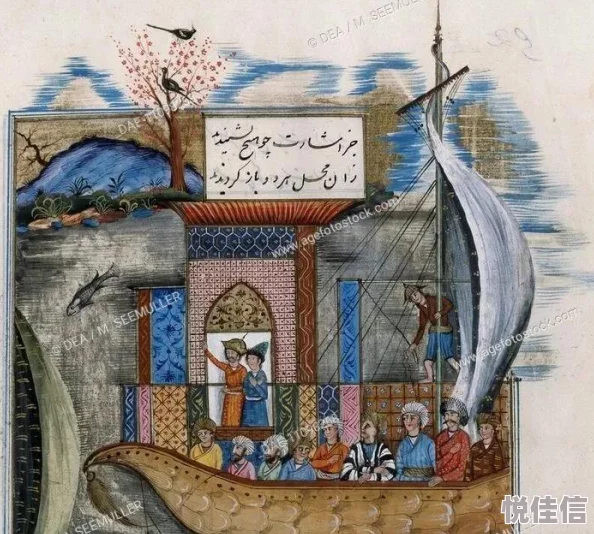 © DEA / M. SEEMULLER
جز اشارت چو هیچ نشنیدند
زان محل هر دو باز گردیدند
www.agefotostock.com
© DEA / M. SEEMULLER
www.agefotostock.com
SEEMULLER
悦佳信